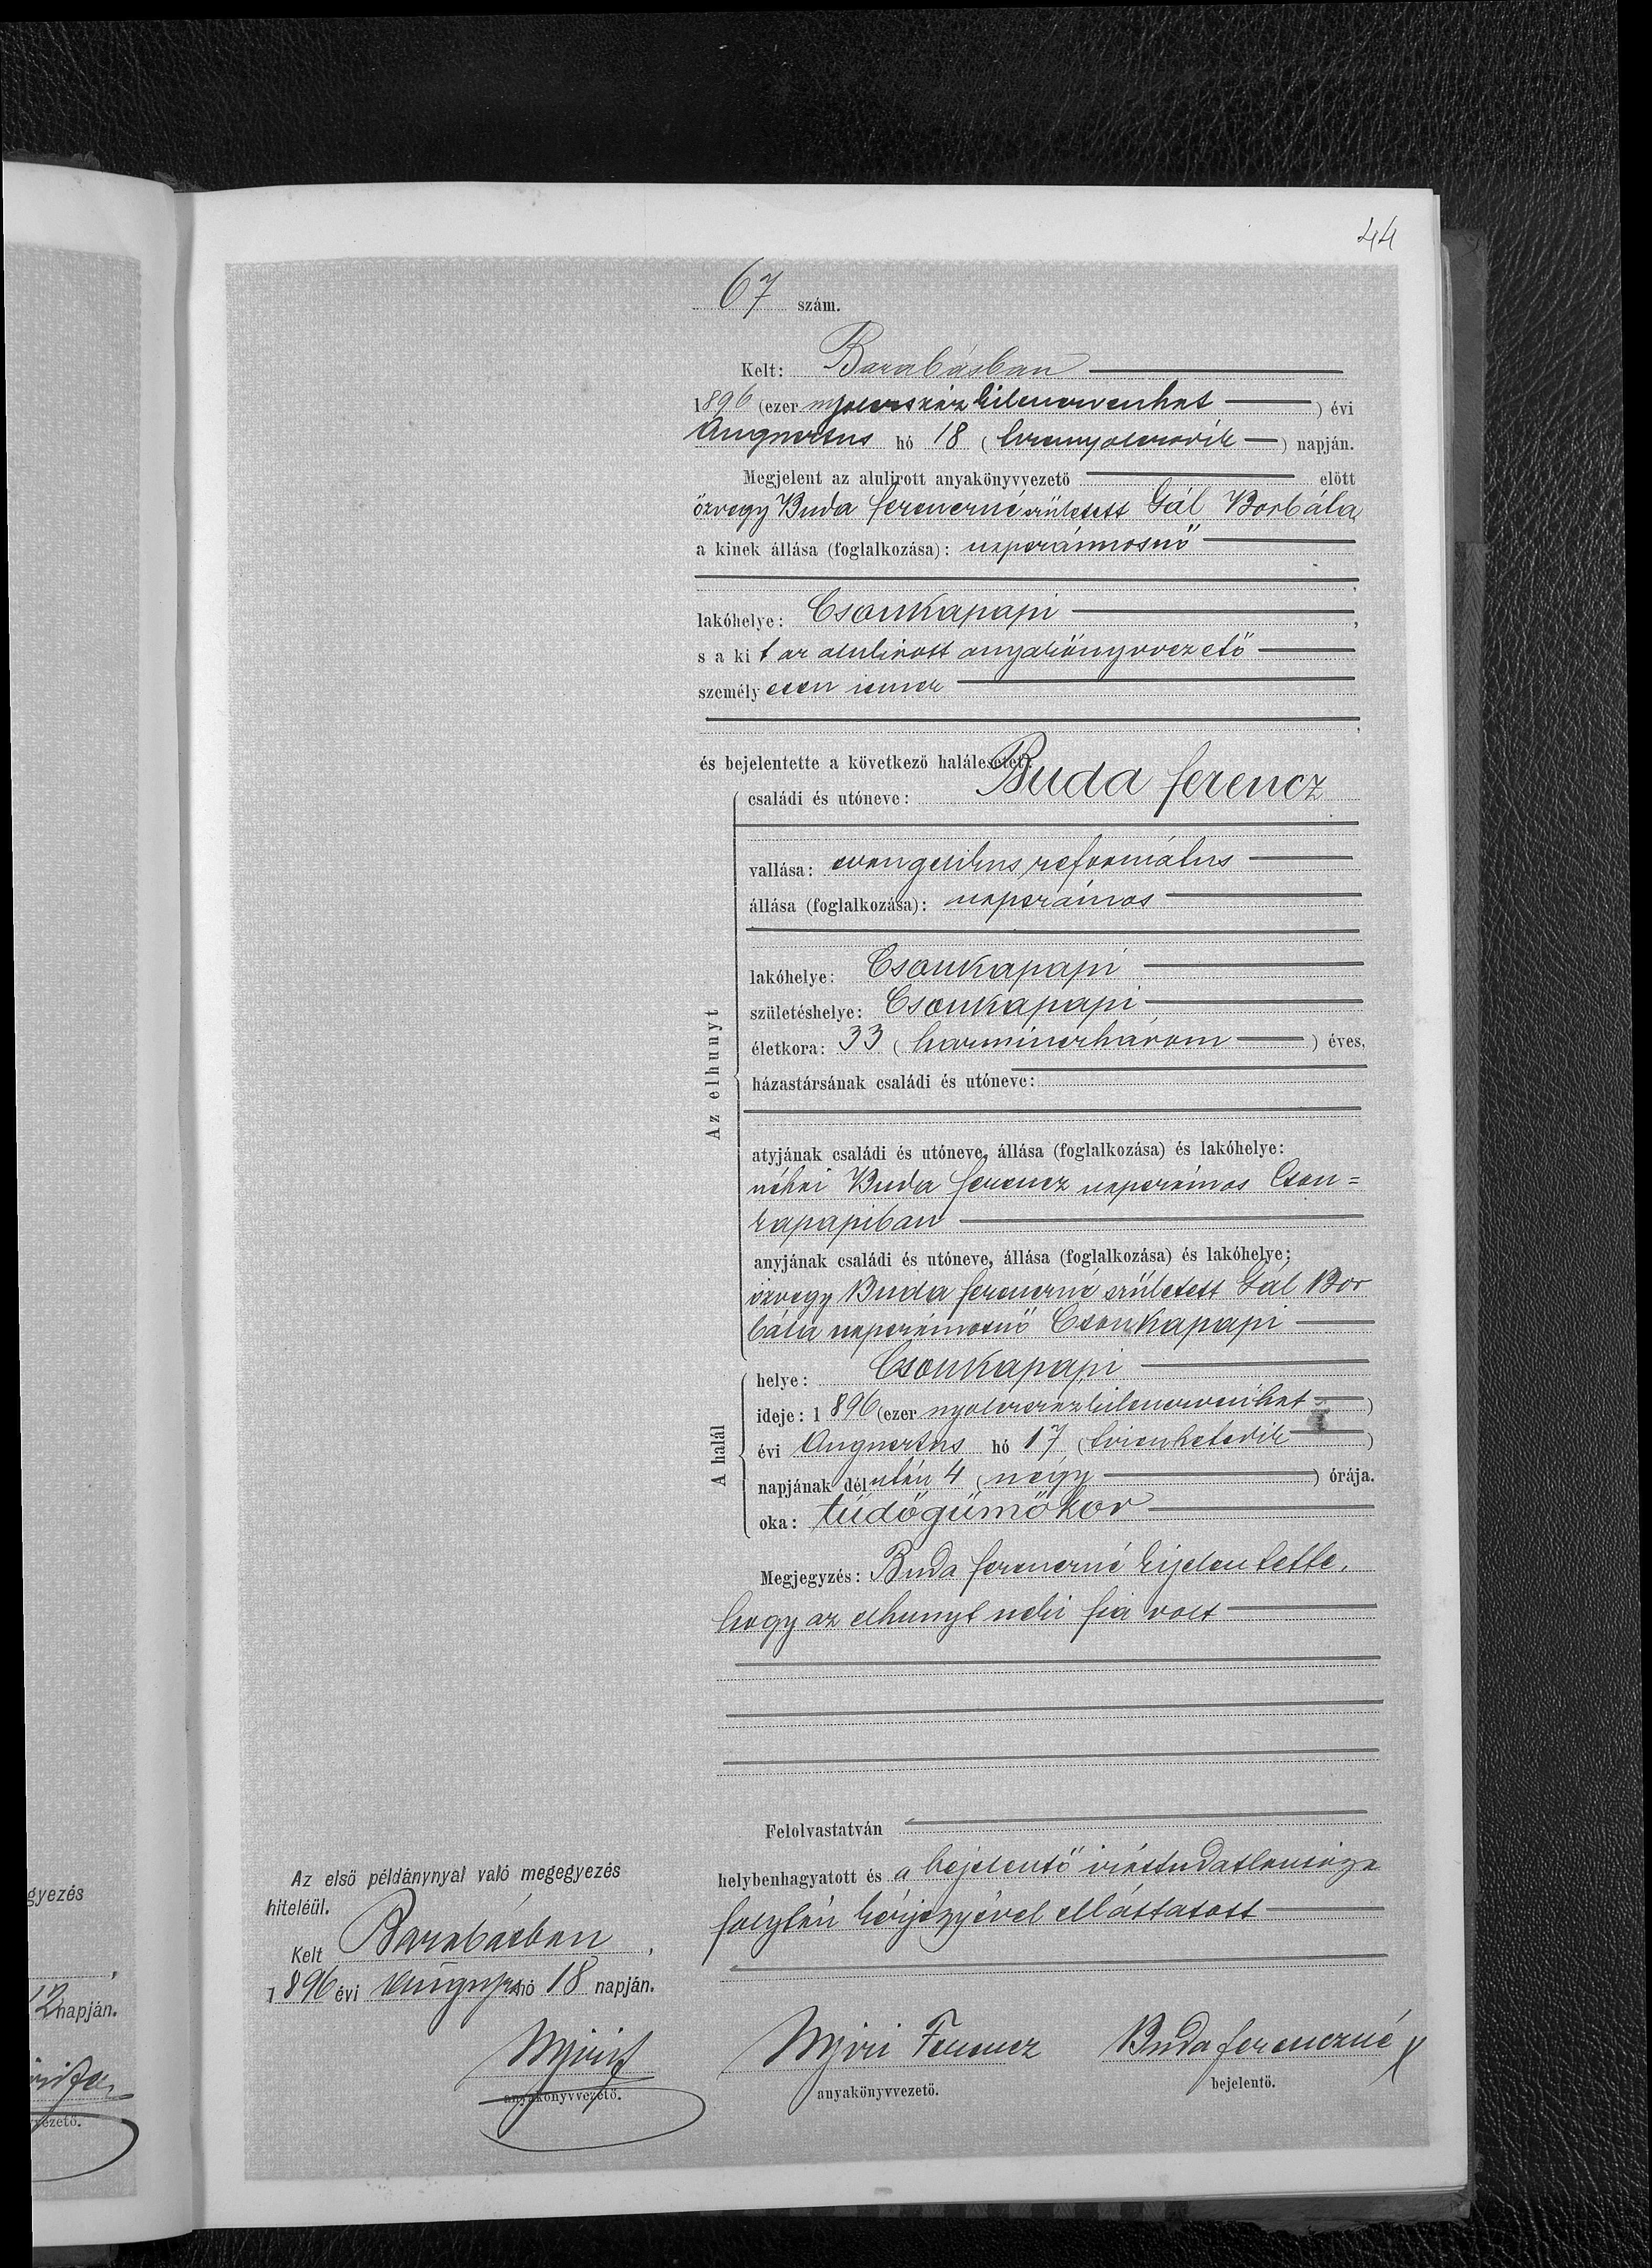 44
67 szám.
Kelt: Barabásban
1896 (ezer nyolcszázkilencvenhat) évi
Augusztus hó 18 (tizennyolcadik) napján.
Megjelent az alulirott anyakönyvvezető előtt
özvegy Buda Ferenczné született Gál Borbála,
a kinek állása (foglalkozása): napszámosnő
lakóhelye: Csonkapapi,
s a kit az alulirott anyakönyvvezető
személyesen ismer
és bejelentette a következő halálesetet:
családi és utóneve: Buda Ferencz
vallása: evangelikus református
állása (foglalkozása): napszámos
lakóhelye: Csonkapapi
születéshelye: Csonkapapi
életkora: 33 (harminczhárom) éves,
házastársának családi és utóneve:
Az elhunyt
atyjának családi és utóneve, állása (foglalkozása) és lakóhelye:
néhai Buda Ferencz napszámos Cson=
kapapiban
anyjának családi és utóneve, állása (foglalkozása) és lakóhelye:
özvegy Buda Ferenczné született Gál Bor
bála napszámosnő Csonkapapi
A halál
helye: Csonkapapi
ideje: 1896 (ezer nyolczszázkilenczvenhat)
évi Augusztus hó 17 (tizenhetedik)
napjának délután 4 (négy) órája.
oka: tüdőgümőkor
Megjegyzés: Buda Ferenczné kijelentette,
hogy az elhunyt neki fia volt
Felolvastatván
helybenhagyatott és a bejelentő irástudatlansága
folytán kézjegyével elláttatott
Az első példánynyal való megegyezés
hiteléül.
Kelt Barabásban,
1896 évi August hó 18 napján.
anyakönyvvezető.
Nyiri Ferencz
anyakönyvvezető.
Buda Ferenczné X
bejelentő.
gyezés
12 napján.
vezető.